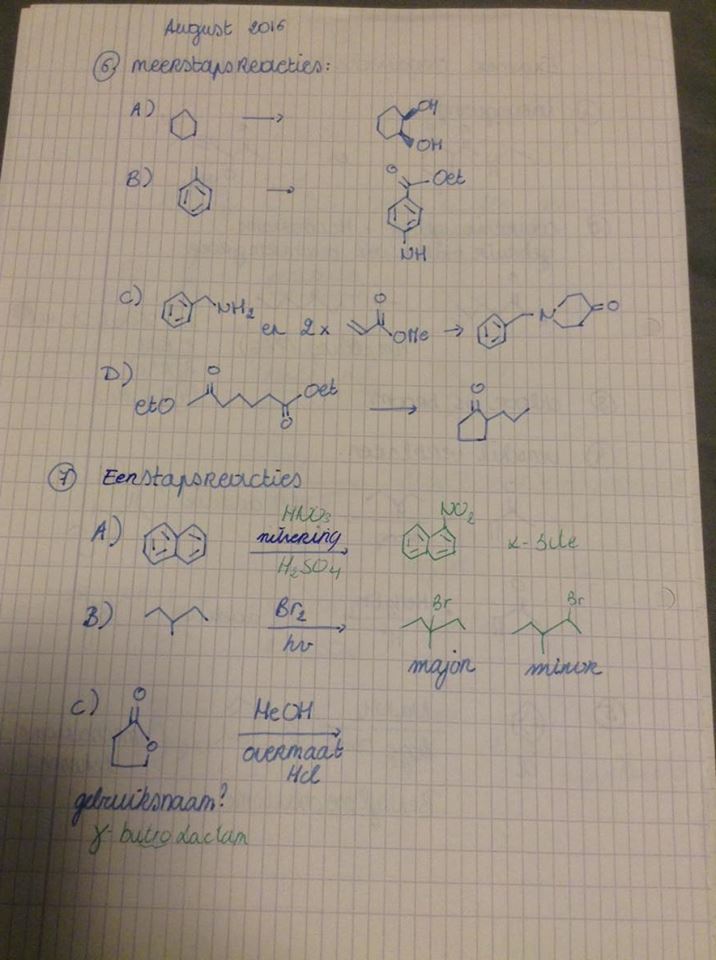 August 2016
⑥ meerstapsreacties:
A) → OH
OH
B) → O OEt
NH
C) NH2 en 2x O OMe → N O
D) EtO O O OEt → O
⑦ Eenstapsreacties
A) HNO3 nitrering H2SO4 NO2 α-Site
B) Br2 hν Br Br
major minor
C) O O MeOH
overmaat
HCl
gebruiksnaam?
γ-butro Lactam